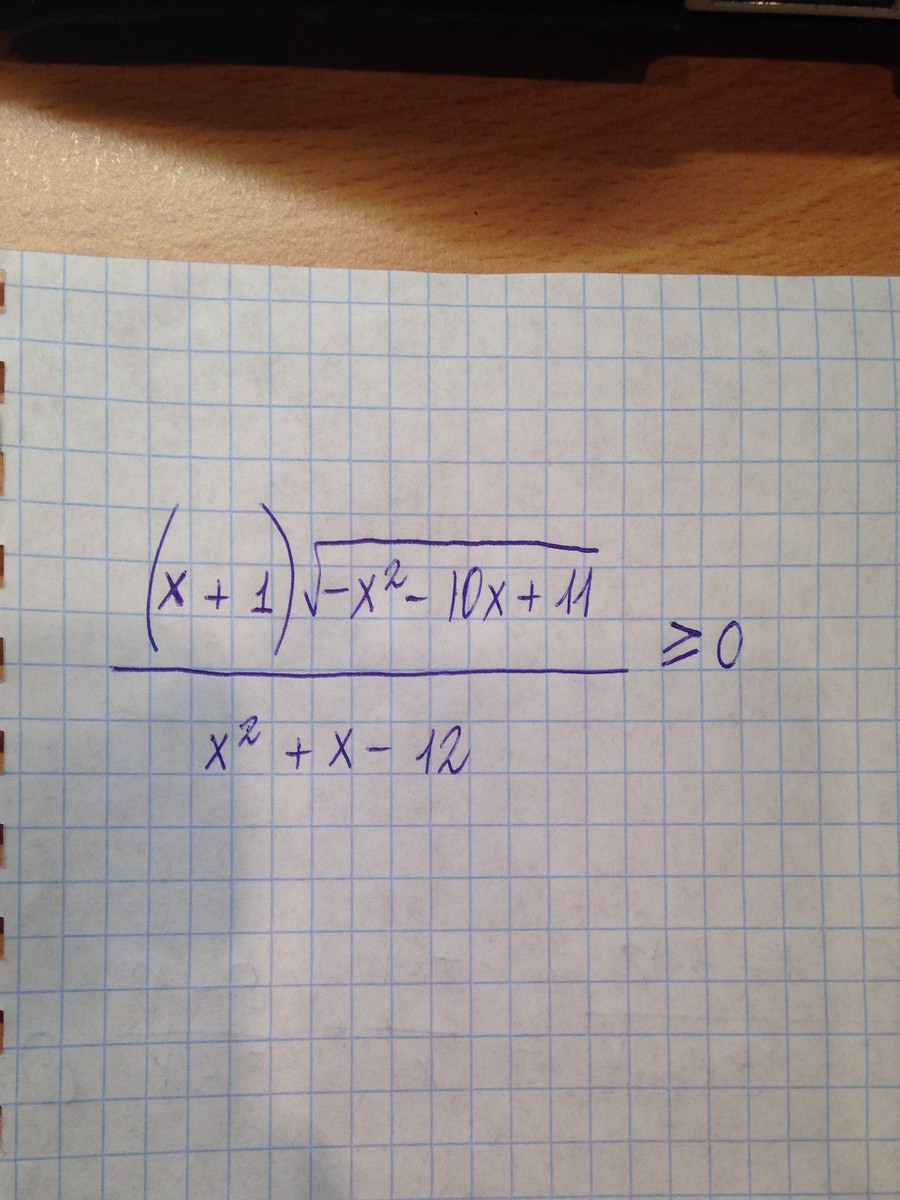 (x + 1)√(-x² - 10x + 11)
≥ 0
x² + x - 12